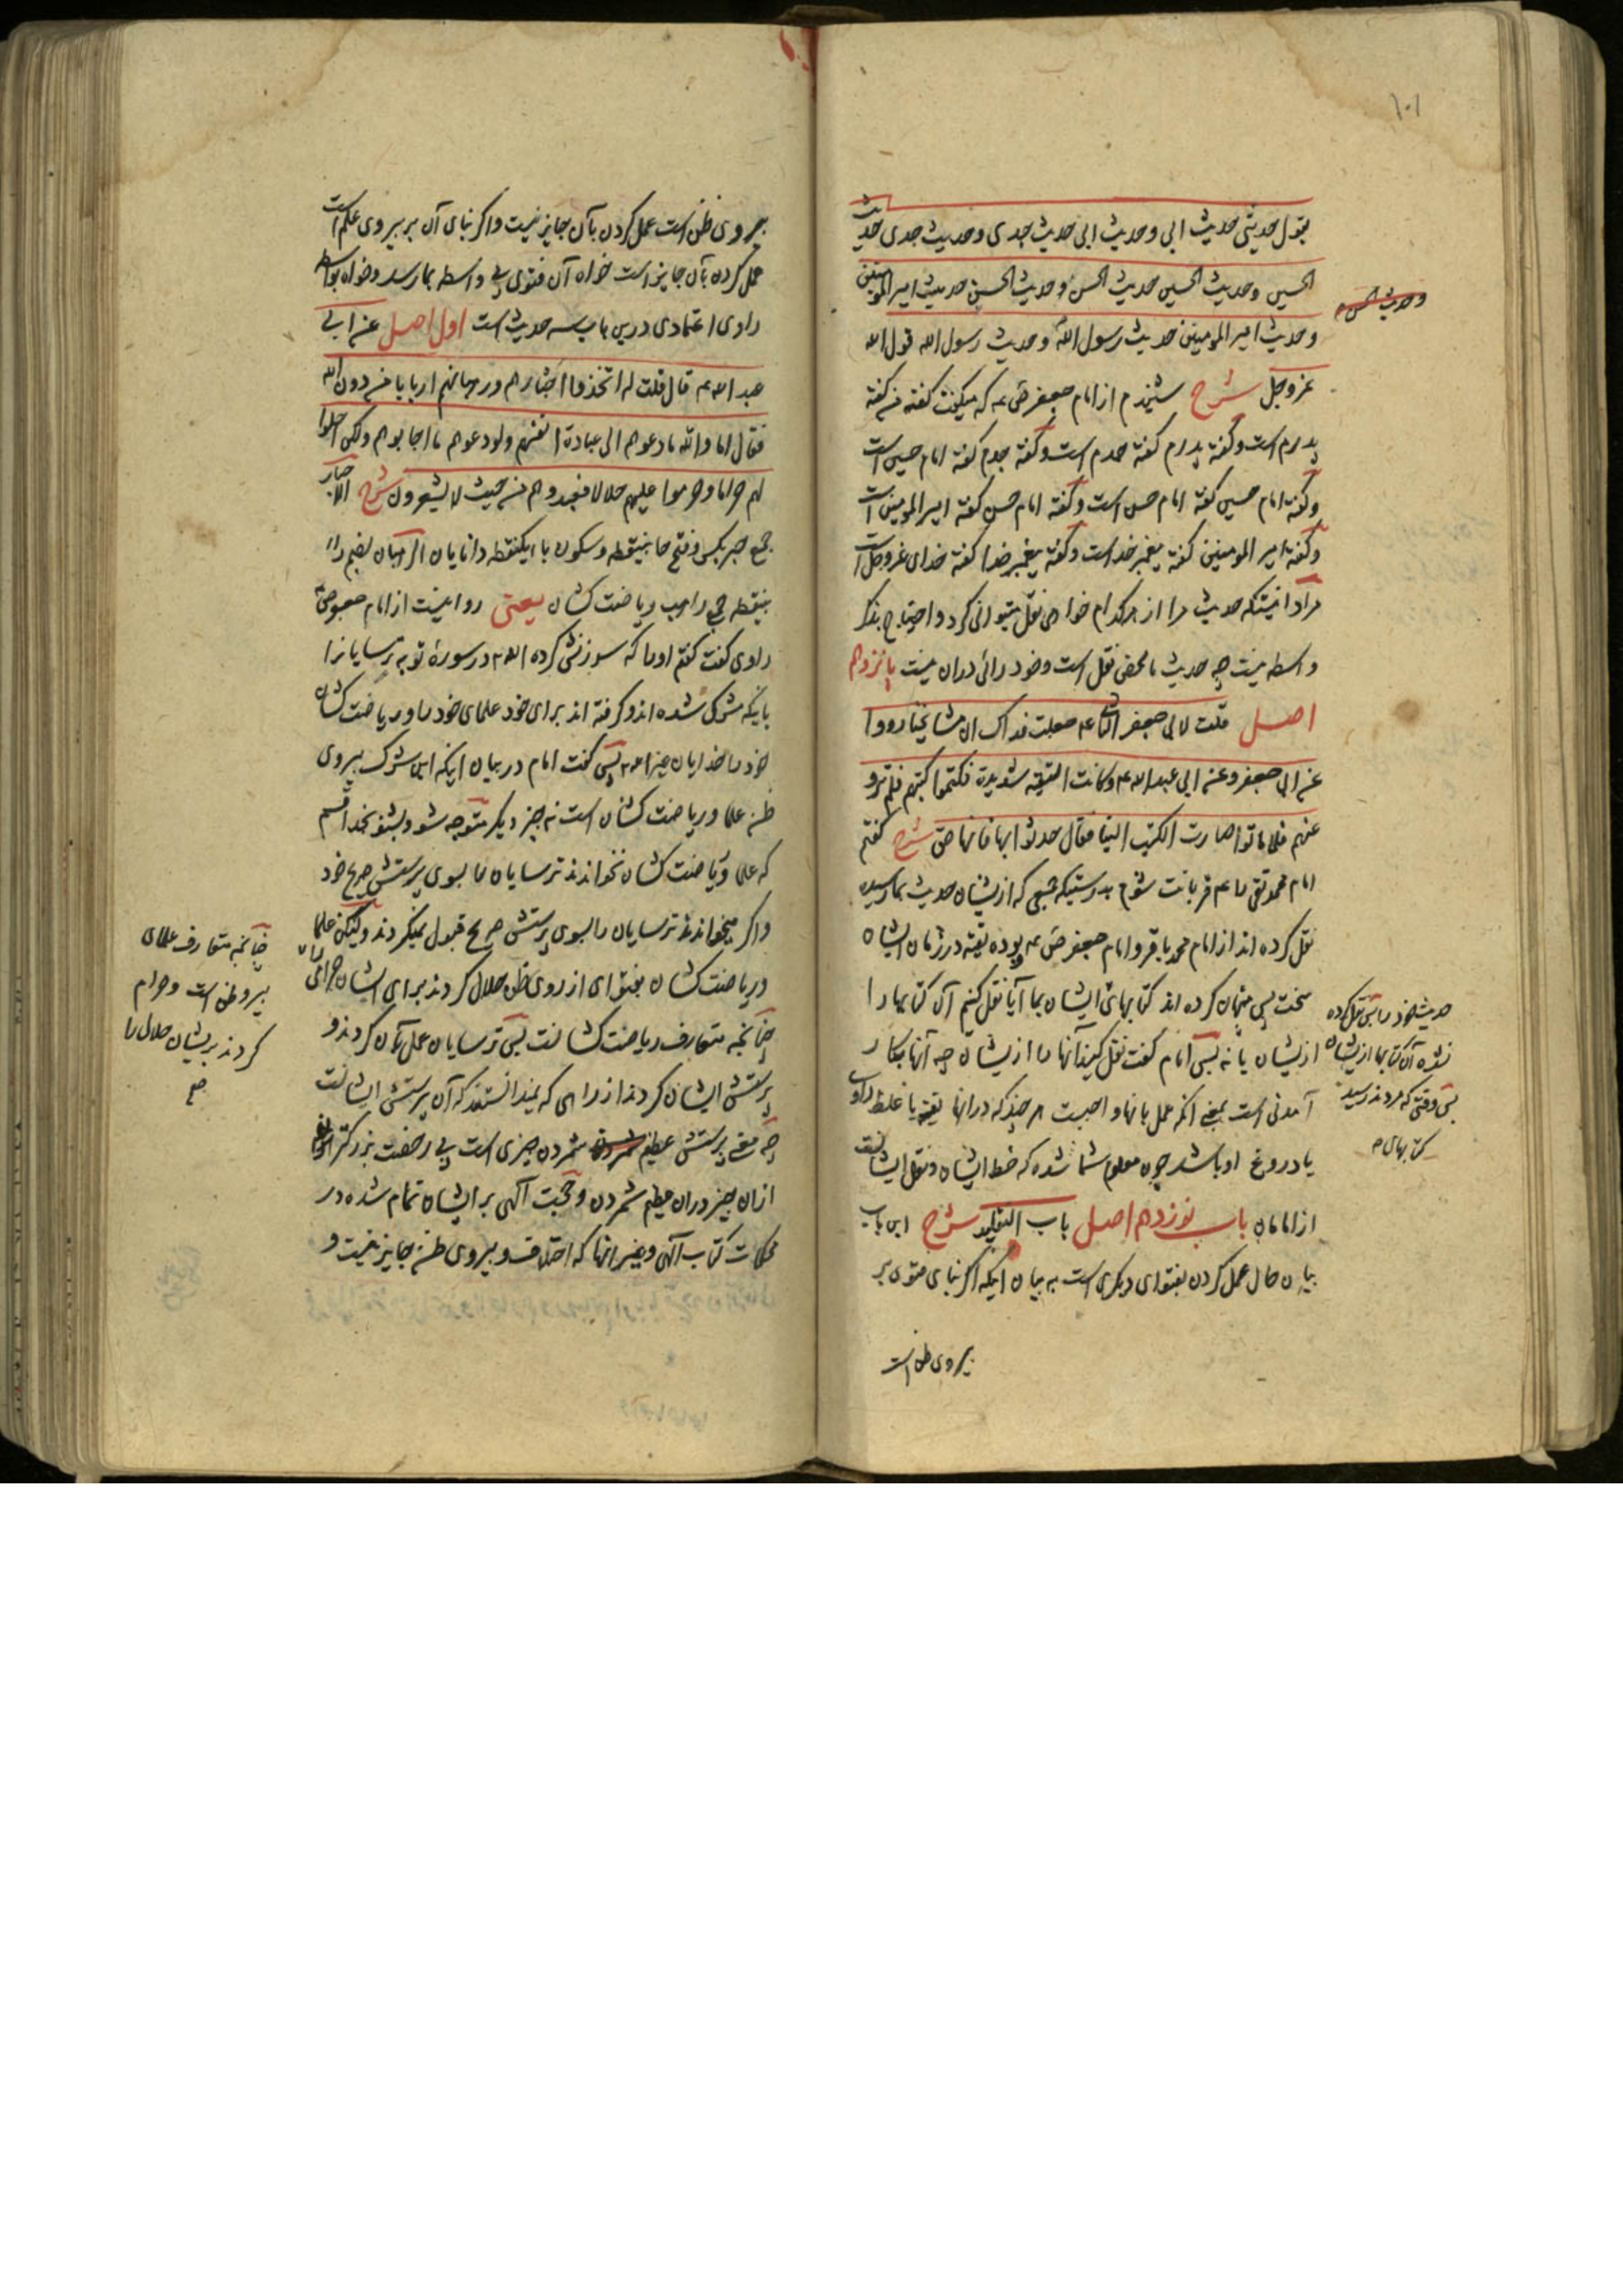 ۱۰۱
یقول حدیثی حدیث ابی و حدیث ابی حدیث جدی و حدیث جدی حدیث
الحسین و حدیث الحسین حدیث الحسن و حدیث الحسن حدیث امیر المومنین
و حدیث الحسن
و حدیث امیر المومنین حدیث رسول الله و حدیث رسول الله قول الله
عز و جل شرح شنیدم از امام جعفر ص ع که میکفت کفته من کفته
پدرم است و کفته پدرم کفته جدم است و کفته جدم کفته امام حسین است
و کفته امام حسین کفته امام حسن است و کفته امام حسن کفته امیر المومنین است
و کفته امیر المومنین کفته پیغمبر خداست و کفته پیغمبر خدا کفته خدای عز و جل است
مراد اینستکه حدیث مرا از هر کدام خواهی نقل میتوانی کرد و احتیاج بذکر
واسطه نیست چه حدیث ما محض نقل است و خود رائی دران نیست پانزدهم
اصل قلت لابی جعفر الثانی ع جعلت فداک ان مشایخنا رووا
عن ابی جعفر و عن ابی عبد الله ع و کانت التقیة شدیدة فکتموا کتبهم فلم ترو
عنهم فلما ماتوا صارت الکتب الینا فقال حدثوا بها فانها حق شرح کفتم
امام محمد تقی را ع قربانت شوم بدرستیکه جمعی که ازیشان حدیث بما رسیده
نقل کرده اند از امام محمد باقر و امام جعفر ص ع و بوده تقیه در زمان ایشان
سخت پس پنهان کرده اند کتابهای ایشان بما آیا نقل کنیم آن کتابها را
ازیشان یا نه پس امام کفت نقل کنید آنها را ازیشان چه آنها بکار
آمدنی است بمعنی انکه عمل بانها واجبست هر چند که درانها تقیه یا غلط راوی
یا دروغ او باشد چون معلوم شما شده که خط ایشان و نقل ایشانست
از امامان باب نوزدهم اصل باب التقلید شرح این باب
بیان حال عمل کردن بفتوای دیکری است به بیان اینکه اکر بنای فتوی بر
پیروی ظن است
حدیث خود را پس نقل کرده
نشده آن کتابها ازیشان
پس وقتی که مردند رسید
کتابهای
پیروی ظن است عمل کردن بآن جایز نیست و اکر بنای آن بر پیروی علم است
عمل کردن بآن جایز است خواه آن فتوی بی واسطه بما رسد و خواه بواسطه
راوی اعتمادی درین باب سه حدیث است اول اصل عن ابی
عبد الله ع قال قلت له اتخذوا احبارهم و رهبانهم اربابا من دون الله
فقال اما والله ما دعوهم الی عبادة انفسهم ولو دعوهم ما اجابوهم ولکن احلوا
لهم حراما و حرموا علیهم حلالا فعبدوهم من حیث لا یشعرون شرح الاحبار
جمع حبر بکسر و فتح حا بینقطه و سکون با ایکنقطه دانایان الرهبان بضم را
بینقطه جمع راهب ریاضت کشان یعنی روایتست از امام جعفر ص ع
راوی کفت کفتم او را که سرزنش کرده الله در سورهٔ توبه ترسایانرا
باینکه مشرک شده اند و کرفته اند برای خود علمای خود را و ریاضت کشان
خود را خدایان غیر الله پس کفت امام در بیان اینکه این شرک پیروی
ظن علما و ریاضت کشان است نه چیز دیکر متوجه شو و بشنو بخدا قسم
که علما و ریاضت کشان نخواندند ترسایان را بسوی پرستش صریح خود
و اکر میخواندند ترسایان را بسوی پرستش صریح قبول نمیکردند ولیکن علما
و ریاضت کشان بفتوای از روی ظن حلال کردند برای ایشان حرامی را
چنانچه متعارف ریاضت کشانست پس ترسایان عمل بآن کردند و
پرستش ایشان کردند از راهی که نمیدانستند که آن پرستش ایشانست
چه معنی پرستش عظیم شمردن چیزی است بی رخصت بزرکتر
ازان چیز دران عظیم شمردن و حجت آلهی بر ایشان تمام شده در
محکمات کتاب آلهی و غیر انها که اختلاف و پیروی ظن جایز نیست و
چنانچه متعارف علمای
پیرو ظن است و حرام
کردند بریشان حلال را
صح